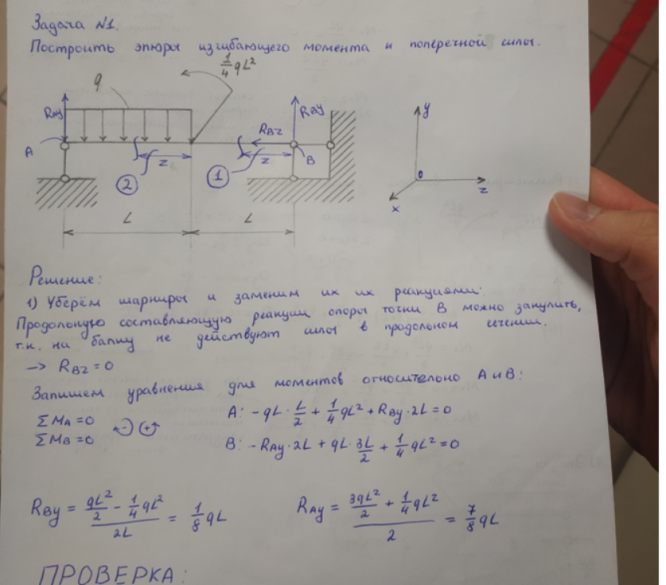 Задача №1.
Построить эпюры изгибающего момента и поперечной силы.
1/4 qL²
q
RAy
RBY
RBZ
A
B
z
z
2
1
L
L
y
0
z
x
Решение:
1) Уберём шарниры и заменим их их реакциями:
Продольную составляющую реакции опоры точки В можно занулить,
т.к. на балку не действуют силы в продольном сечении.
→ RBZ = 0
Запишем уравнения для моментов относительно А и В:
ΣMA = 0
ΣMB = 0
- +
A: -qL · L/2 + 1/4 qL² + RBy · 2L = 0
B: -RAy · 2L + qL · 3L/2 + 1/4 qL² = 0
RBy = (qL²/2 - 1/4 qL²)/2L = 1/8 qL
RAy = (3qL²/2 + 1/4 qL²)/2 = 7/8 qL
ПРОВЕРКА: